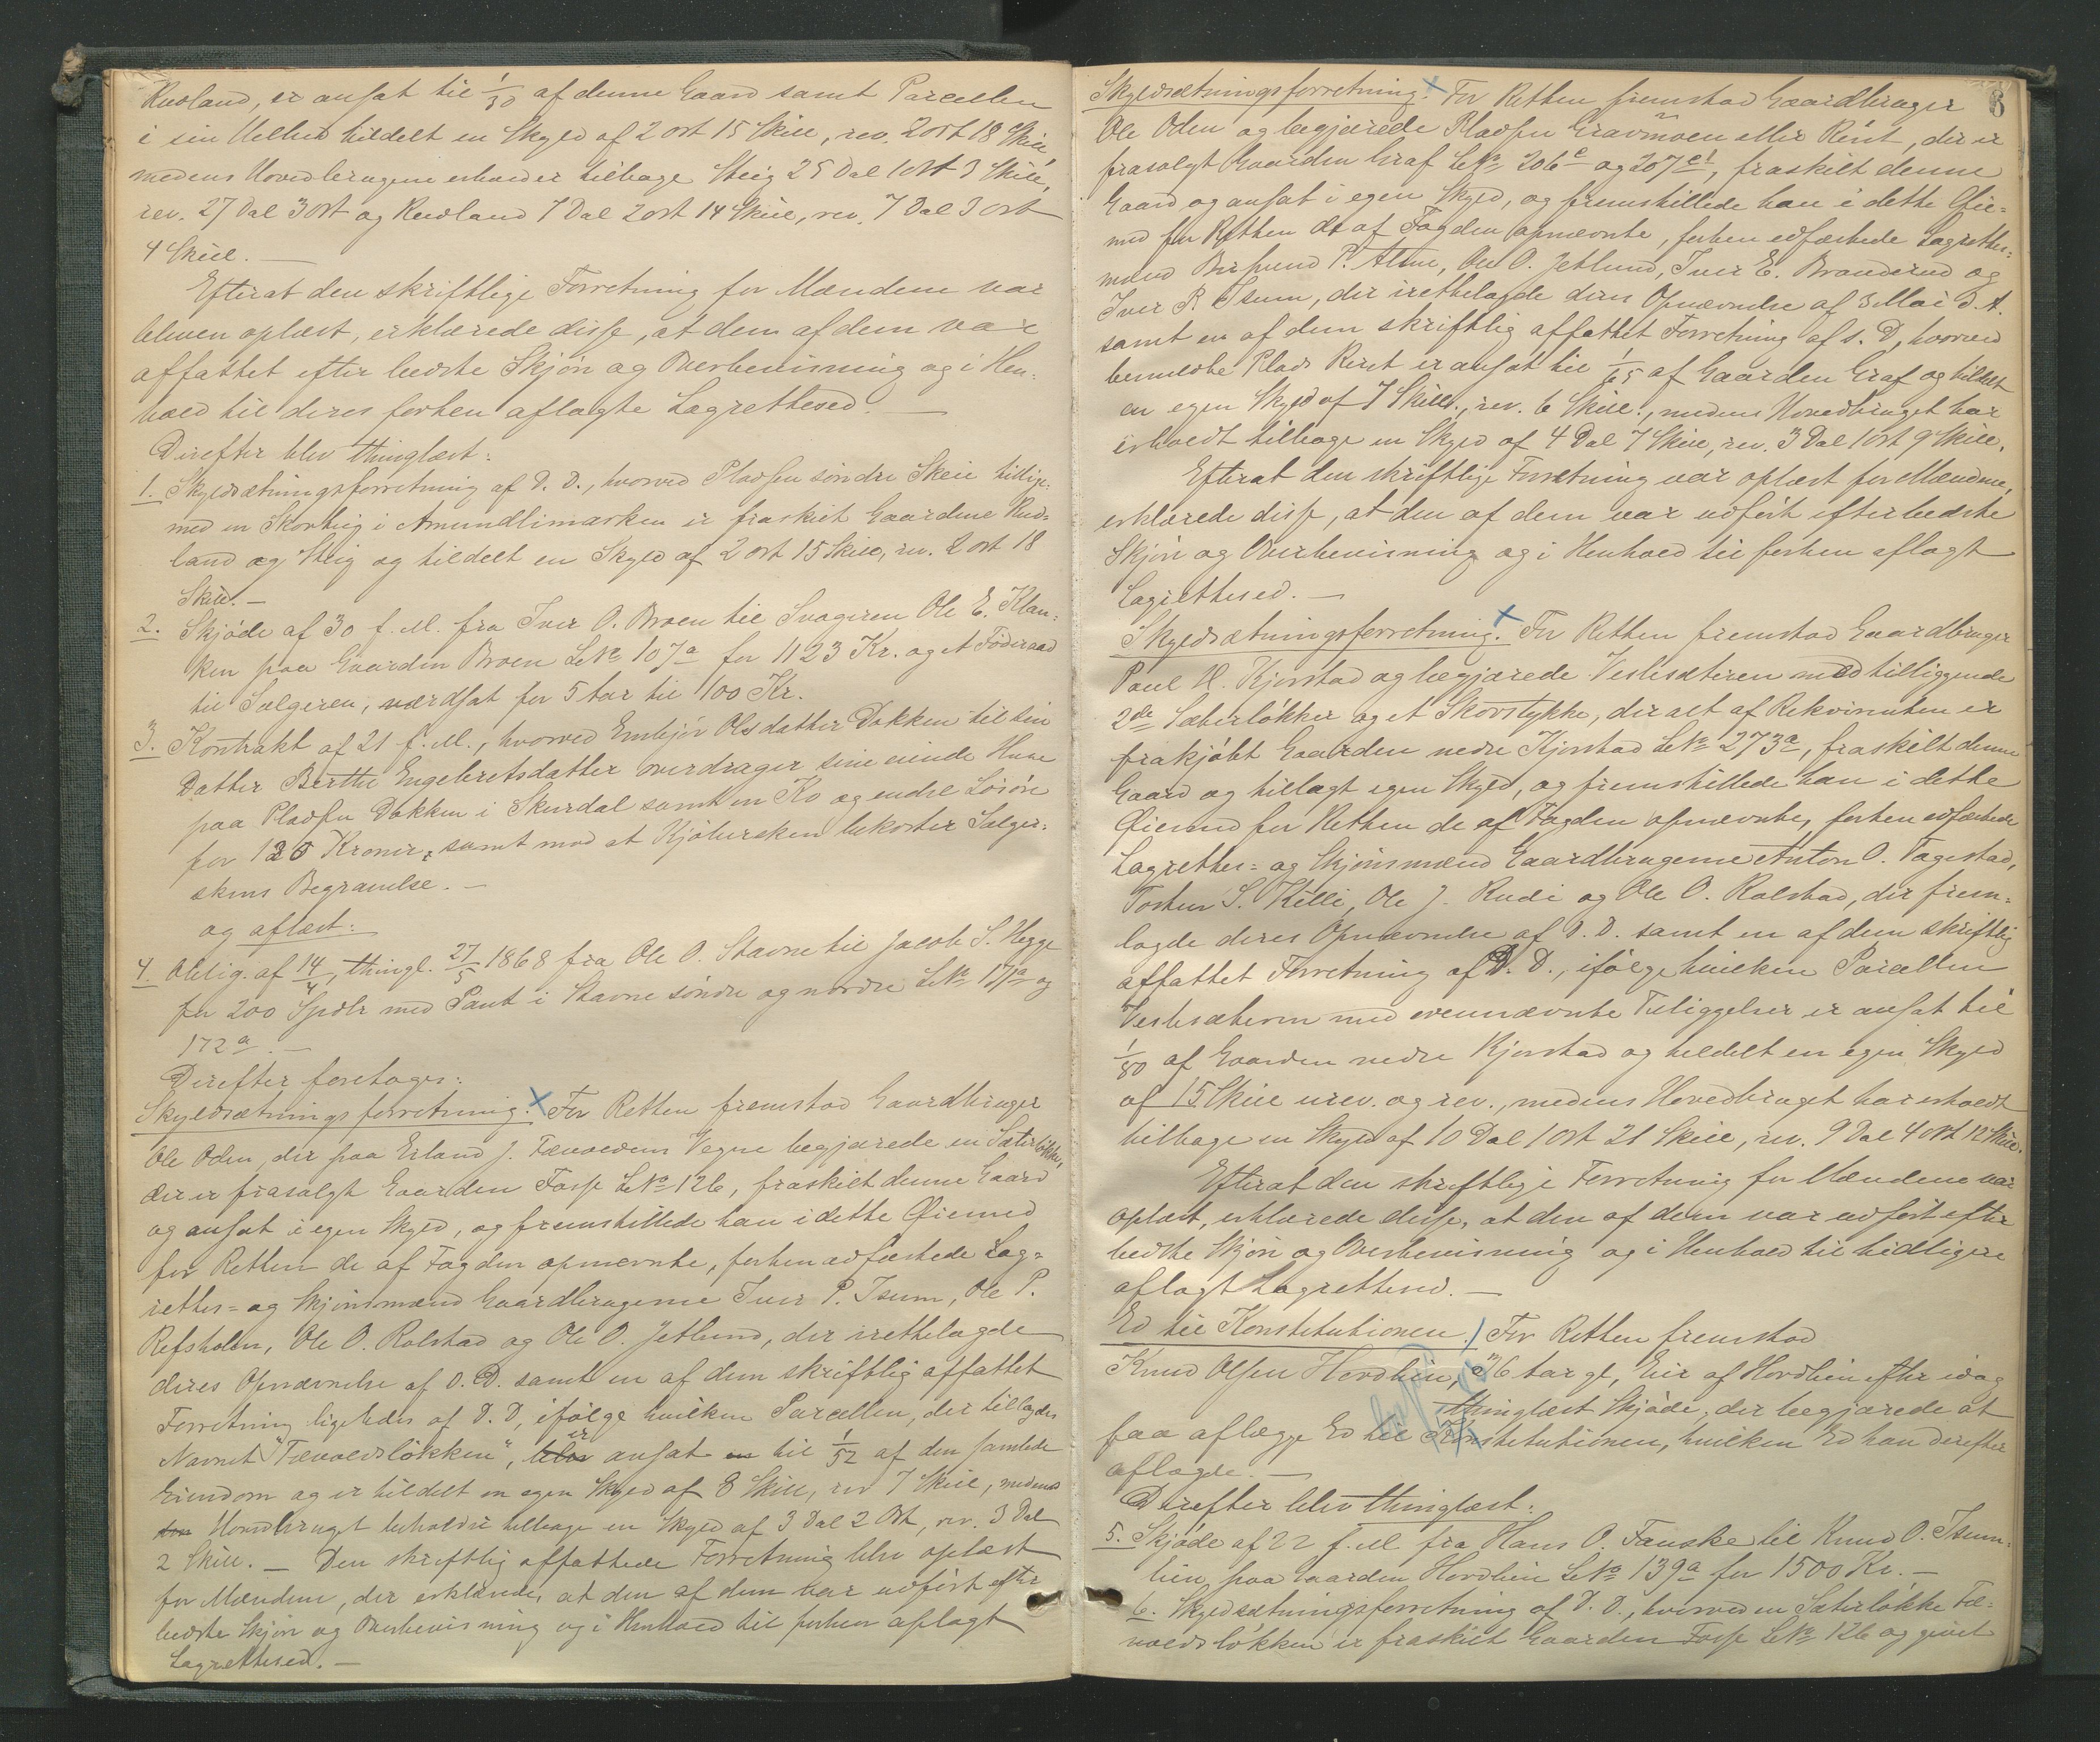 Rudland, er ansat til 1/30 af denne Gaard samt Parcellen
i sin Helhed tildelt en Skyld af 2 ort 15 Skill, rev. 2 ort 18 Skill,
medens Hovedbrugene erholder tilbage Steig 25 Dal 1 Ort 3 Skill,
rev. 27 Dal 3 ort og Rudland 7 Dal 2 ort 14 Skill, rev. 7 Dal 3 Ort
4 Skill. —
Efterat den skriftlige Forretning for Mændene var
bleven oplæst, erklærede disse, at den af dem var
affattet efter bedste Skjøn og Overbevisning og i Hen-
hold til deres forhen aflagte Lagrettesed. —
Derefter blev thinglæst:
1. Skyldsætningsforretning af D. D., hvorved Pladsen søndre Skeie tillige-
med en Skovteig i Amundlimarken er fraskilt Gaardene Rud-
land og Steig og tildelt en Skyld af 2 ort 15 Skill, rev. 2 ort 18
Skill. —
2. Skjøde af 30 f. M. fra Iver O. Broen til Svogeren Ole E. Klan-
ken paa Gaarden Broen LNo 107a for 1123 Kr. og et Føderaad
til Sælgeren, værdsat for 5 Aar til 1100 Kr.
3. Kontrakt af 21 f. M., hvorved Embjør Olsdatter Dokken til sin
Datter Berthe Engebretsdatter overdrager sine eiende Huse
paa Pladsen Dokken i Skurdal samt en Ko og endel Løsøre
for 120 Kroner, samt mod at Kjøbersken bekoster Sælger-
skens Begravelse. —
og aflæst:
4. Oblig. af 14/4, thingl. 27/5 1868 fra Ole O. Stavne til Jacob S. Hegge
for 200 Spdlr med Pant i Stavne søndre og nordre LNo 171a og
172a. —
Derefter foretoges:
Skyldsætningsforretning. For Retten fremstod Gaardbruger
Ole Oden, der paa Erland J. Tævoldens Vegne begjærede en Sæterløkke,
der er frasolgt Gaarden Fosse LNo 126, fraskilt denne Gaard
og ansat i egen Skyld, og fremstillede han i dette Øiemed
for Retten de af Fogden opnævnte, forhen edfæstede Lag-
rettes- og Skjønsmænd Gaardbrugerne Iver P. Isum, Ole P.
Refsholen, Ole O. Rolstad og Ole O. Jetlund, der irettelagde
deres Opnævnelse af D. D. samt en af dem skriftlig affattet
Forretning ligeledes af D. D, ifølge hvilken Parcellen, der tillagdes
Navnet "Tævoldsløkken", er ansat til 1/52 af den samlede
Eiendom og er tildelt en egen Skyld af 8 Skill, rev 7 Skill, medens
Hovedbruget beholder tilbage en Skyld af 3 Dal 2 Ort, rev. 3 Dal
2 Skill. — Den skriftlig affattede Forretning blev oplæst
for Mændene, der erklærede, at den af dem var udført efter
bedste Skjøn og Overbevisning og i Henhold til forhen aflagt
Lagrettesed. —
8
Skyldsætningsforretning. For Retten fremstod Gaardbruger
Ole Oden og begjærede Pladsen Gravmoen eller Rønt, der er
frasolgt Gaarden Graf LNo 206c og 207c1, fraskilt denne
Gaard og ansat i egen Skyld, og fremstillede han i dette Øie-
med for Retten de af Fogden opnævnte, forhen edfæstede Lagrettes-
mænd P. Alme, Ole O. Jetlund, Iver E. Branderud og
Iver P. Isum, der irettelagde deres Opnævnelse af 3 Mai d. A.
samt en af dem skriftlig affattet Forretning af s. D, hvorved
bemeldte Plads Rønt er ansat til 1/65 af Gaarden Graf og tildelt
en egen Skyld af 7 Skill., rev. 6 Skill., medens Hovedbruget har
erholdt tilbage en Skyld af 4 Dal 7 Skill, rev. 3 Dal 1 Ort 9 Skill.
Efterat den skriftlige Forretning var oplæst for Mændene,
erklærede disse, at den af dem var udført efter bedste
Skjøn og Overbevisning og i Henhold til forhen aflagt
Lagrettesed. —
Skyldsætningsforretning. For Retten fremstod Gaardbruger
Paul H. Kjorstad og begjærede Veslesæteren med tilliggende
2de Sæterløkker og et Skovstykke, der alt af Rekvirenten er
frakjøbt Gaarden nedre Kjorstad LNo 273a, fraskilt denne
Gaard og tillagt egen Skyld, og fremstillede han i dette
Øiemed for Retten de af Fogden opnævnte, forhen edfæstede
Lagrettes- og Skjønsmænd Gaardbrugerne Anton O. Tagestad,
Torsten S. Killi, Ole J. Rudi og Ole O. Rolstad, der frem-
lagde deres Opnævnelse af D. D. samt en af dem skriftlig
affattet Forretning af D. D., ifølge hvilken Parcellen
Veslesæteren med ovennævnte Tilliggelser er ansat til
1/80 af Gaarden nedre Kjorstad og tildelt en egen Skyld
af 15 Skill urev. og rev., medens Hovedbruget har erholdt
tilbage en Skyld af 10 Dal 1 Ort 21 Skill, rev. 9 Dal 4 Ort 12 Skill.
Efterat den skriftlige Forretning for Mændene var
oplæst, erklærede disse, at den af dem var udført efter
bedste Skjøn og Overbevisning og i Henhold til tidligere
aflagt Lagrettesed. —
Ed til Konstitutionen. For Retten fremstod
Knud Olsen Hovdlien, 26 Aar gl, Eier af Hovdlien efter idag
thinglæst Skjøde, der begjærede at
faa aflægge Ed til Konstitutionen, hvilken Ed han derefter
aflagde. —
Derefter blev thinglæst:
5. Skjøde af 22 f. M. fra Hans O. Fauske til Knud O. Isum-
lien paa Gaarden Hovdlien LNo 139a for 1500 Kr. —
6. Skyldsætningsforretning af D. D., hvorved en Sæterløkke Tæ-
voldsløkken er fraskilt Gaarden Fosse LNo 126 og givet